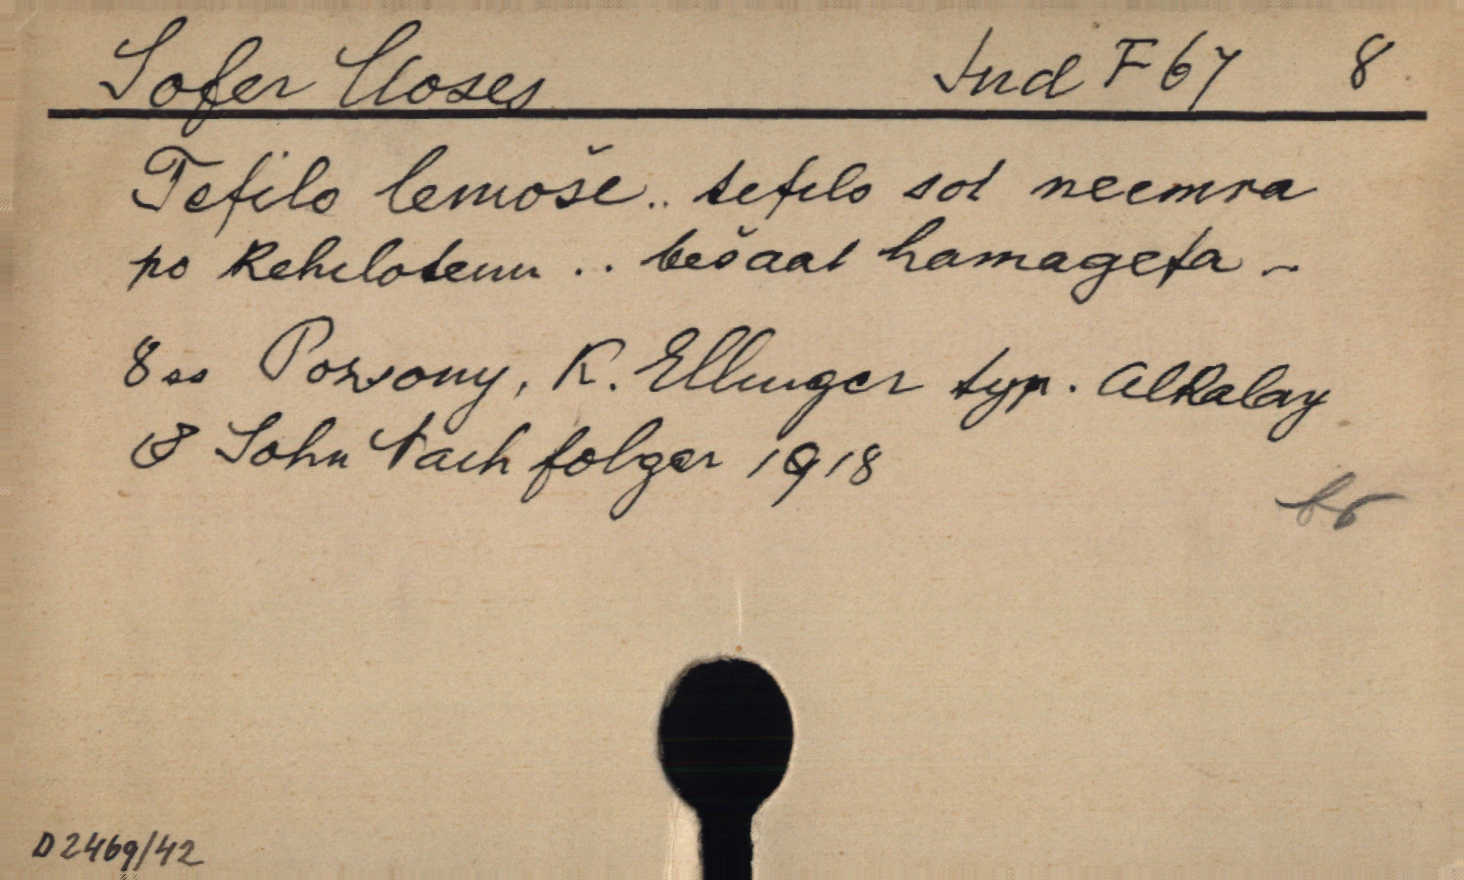 Sofer Moses Jud F 67 8
Tefilo lemoše.. tefilo sot neemra
po kehilotenu .. bešaat hamagefa -
8 ss Pozsony, K. Ellinger typ. Alkalay
& Sohn Nachfolger 1918
D2469/42